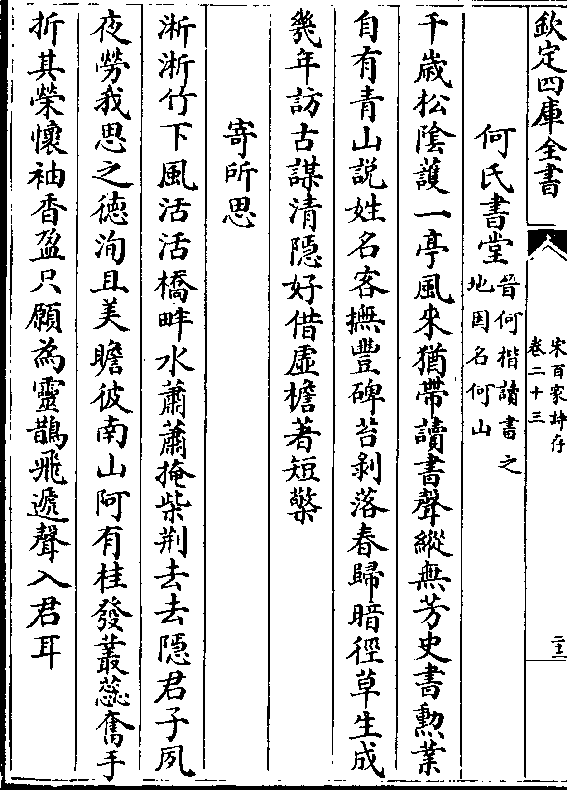 欽定四庫全書
宋百家詩存
卷二十三
二十三
何氏書堂
晉何楷讀書之
地因名何山
千歲松陰護一亭風來猶帶讀書聲縱無芳史書勲業
自有青山說姓名客撫豐碑苔剥落春歸暗徑草生成
幾年訪古謀清隱好借虛檐著短檠
寄所思
淅淅竹下風活活橋畔水蕭蕭掩柴荆去去隱君子夙
夜勞我思之德洵且美瞻彼南山阿有桂發叢蕊奮手
折其榮懷袖香盈只願為靈鵲飛遞聲入君耳